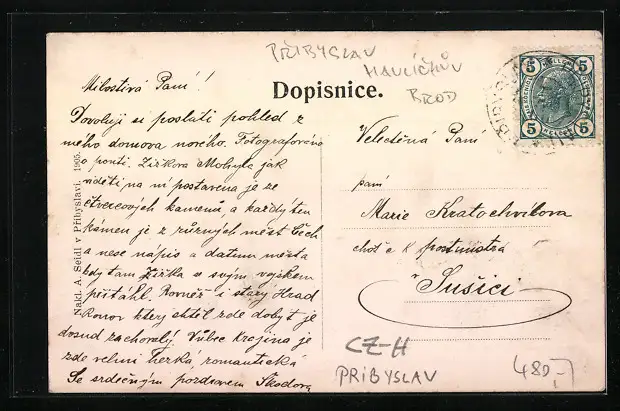 PŘIBYSLAV
HAVLÍČKŮV
BROD
Dopisnice.
Milostivá Paní!
Dovoluji si poslati pohled z
mého domova nového. Fotografováno
o pouti. Žižkova Mohyla jak
viděti na ní postavena je ze
čtvercových kamenů, a každý ten
kámen je z různých měst Čech
a nese nápis a datum města
kdy tam Žižka s svým vojskem
přitáhl. Rovněž i starý Hrad
Ronov který chtěl zde dobyt je
dosud zachovalý. Vůbec krajina je
zde velmi hezká romantická
Se srdečným pozdravem Škodova
Nakl. A. Seidl v Přibyslavi. 1905.
5 5
5 5
Velectěná Paní
paní
Marie Kratochvílova
choť c k postmistra
v Sušici
CZ-H
PRIBYSLAV
480,-